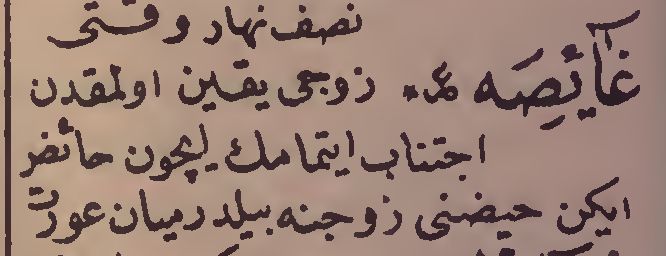 نصف نهار وقتی
غَآئِصَه ع٭ زوجی یقین اولمقدن
اجتناب ایتمامك ایچون حائض
ایكن حیضنی زوجنه بیلدرمیان عورت